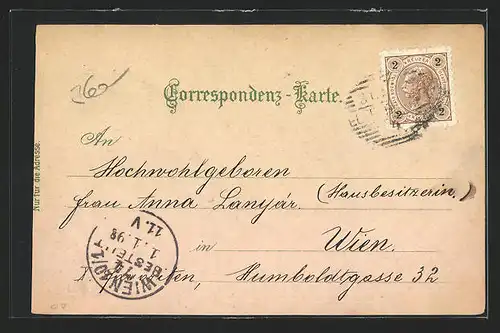 26
Correspondenz-Karte.
2 KREUZER 2
2 2
Nur für die Adresse.
An
Hochwohlgeboren
Frau Anna Lanyár. (Hausbesitzerin)
in Wien.
Humboldtgasse 32
WIEN 10/1
BESTELLT
1.1.98
11.V